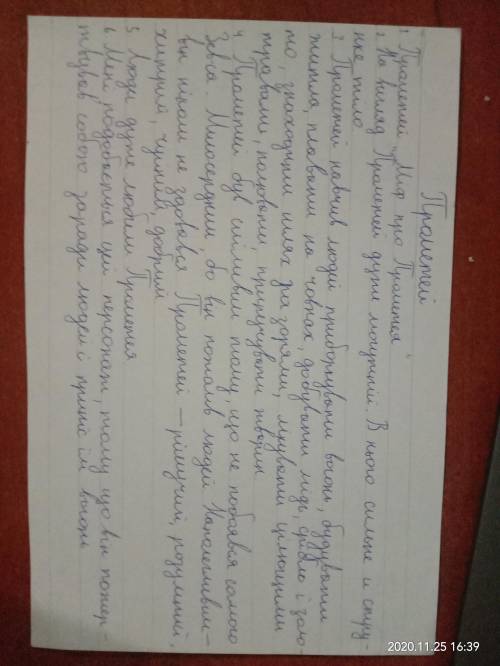 Прометей
1 Прометей „Миф про Прометея"
2 На вигляд Прометей дуже могутній. В нього сильне и стру-
нке тіло
3 Прометей навчив людей приборкувати вогонь, будувати
житла, плавати на човнах, добувати мідь, срібло і золо-
то, знаходити шлях за зорями, лікувати цілющими
травами, полювати, приручувати тварин
4 Прометей був сміливим тому, що не побоявся самого
Зевса. Милосердним, бо він пожалів людей Наполегливим –
він ніколи не здавався Прометей – рішучий, розумний,
хитрий, чуйний, добрий
5 Люди дуже любили Прометея
6 Мені подобається цей персонаж, тому що він пожер-
твував собою заради людей і приніс їм вогонь
2020.11.25 16:39